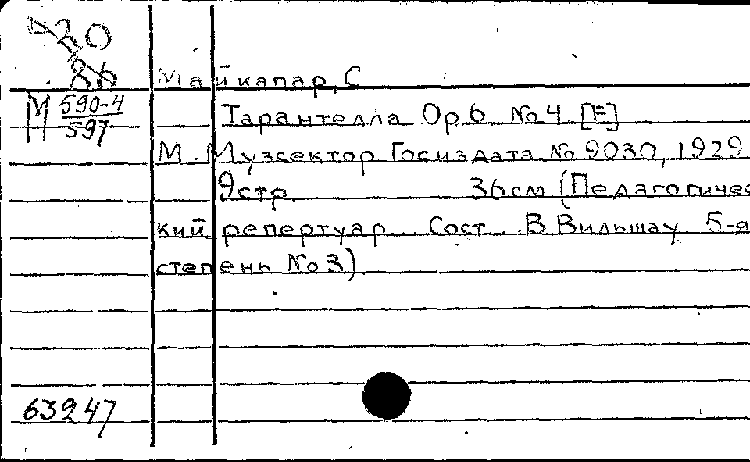 420
86
М 590-4
597
Майкапар, С
Тарантелла Op 6 №4 [E]
М. Музсектор Госиздата № 9030, 1929
9стр. 36см (Педагогичес
кий репертуар. Сост. В Вильшау 5-я
степень №3)
63247